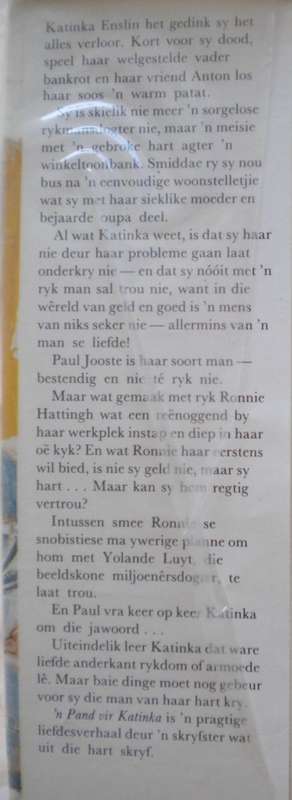 Katinka Enslin het gedink sy het
alles verloor. Kort voor sy dood,
speel haar welgestelde vader
bankrot en haar vriend Anton los
haar soos 'n warm patat.
Sy is skielik nie meer 'n sorgelose
rykmansdogter nie, maar 'n meisie
met 'n gebroke hart agter 'n
winkeltoonbank. Smiddae ry sy nou
bus na 'n eenvoudige woonstelletjie
wat sy met haar sieklike moeder en
bejaarde oupa deel.
Al wat Katinka weet, is dat sy haar
nie deur haar probleme gaan laat
onderkry nie — en dat sy nóóit met 'n
ryk man sal trou nie, want in die
wêreld van geld en goed is 'n mens
van niks seker nie — allermins van 'n
man se liefde!
Paul Jooste is haar soort man —
bestendig en nie té ryk nie.
Maar wat gemaak met ryk Ronnie
Hattingh wat een reënoggend by
haar werkplek instap en diep in haar
oë kyk? En wat Ronnie haar eerstens
wil bied, is nie sy geld nie, maar sy
hart . . . Maar kan sy hom regtig
vertrou?
Intussen smee Ronnie se
snobistiese ma ywerige planne om
hom met Yolande Luyt, die
beeldskone miljoenêrsdogter, te
laat trou.
En Paul vra keer op keer Katinka
om die jawoord . . .
Uiteindelik leer Katinka dat ware
liefde anderkant rykdom of armoede
lê. Maar baie dinge moet nog gebeur
voor sy die man van haar hart kry.
'n Pand vir Katinka is 'n pragtige
liefdesverhaal deur 'n skryfster wat
uit die hart skryf.